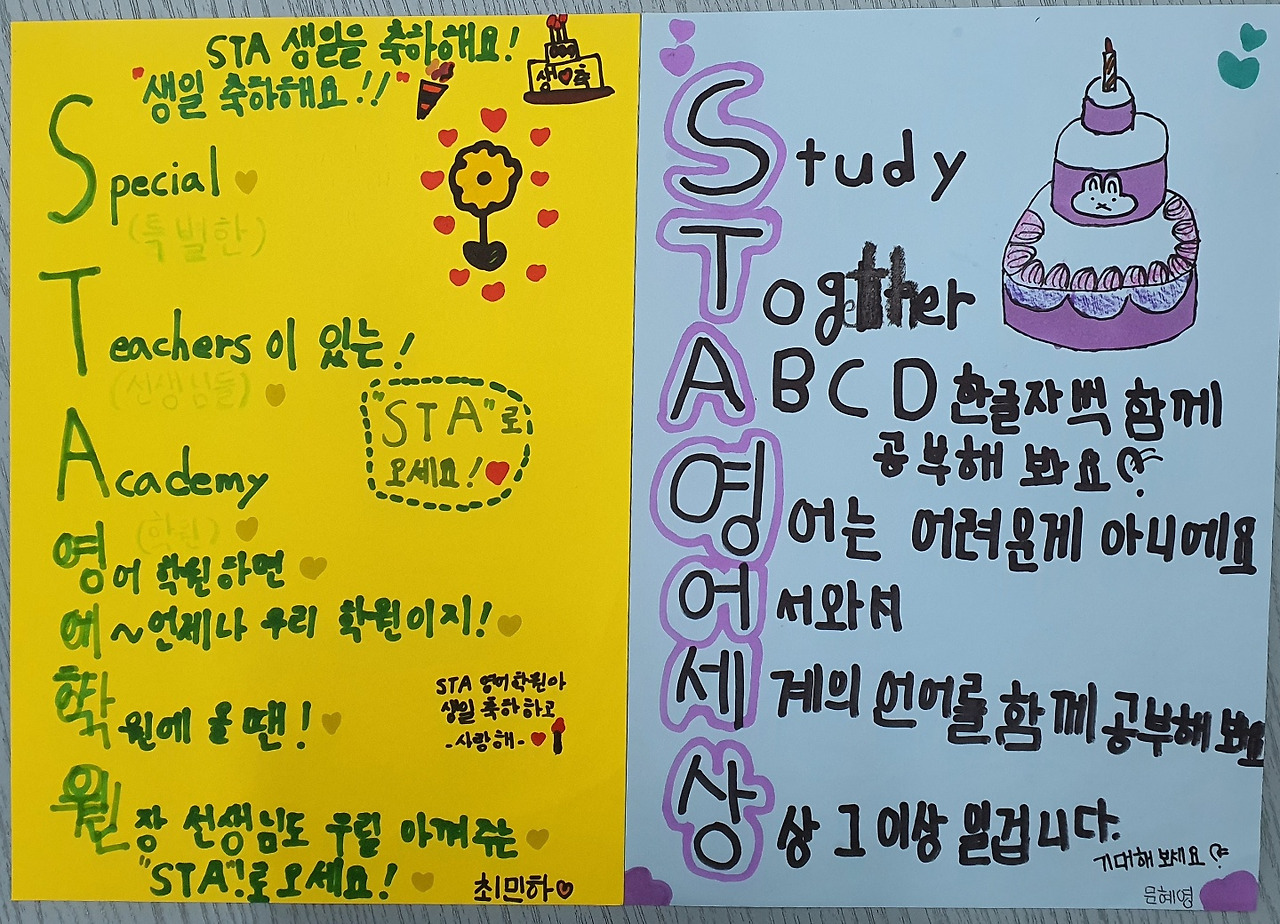 STA 생일을 축하해요!
"생일 축하해요!!"
생♥축
Special
(특별한)
Teachers이 있는!
(선생님들)
"STA"로
오세요!
Academy
(학원)
영어 학원하면
어~언제나 우리 학원이지!
학원에 올 땐!
STA 영어학원아
생일 축하하고
-사랑해-
원장 선생님도 우릴 아껴주는
"STA"!로 오세요!
최민하
Study
Together
ABCD 한글자씩 함께
공부해 봐요
영어는 어려운게 아니에요
어서와서
세계의 언어를 함께 공부해 봐요
상상 그 이상 일겁니다.
기대해 보세요
문혜영